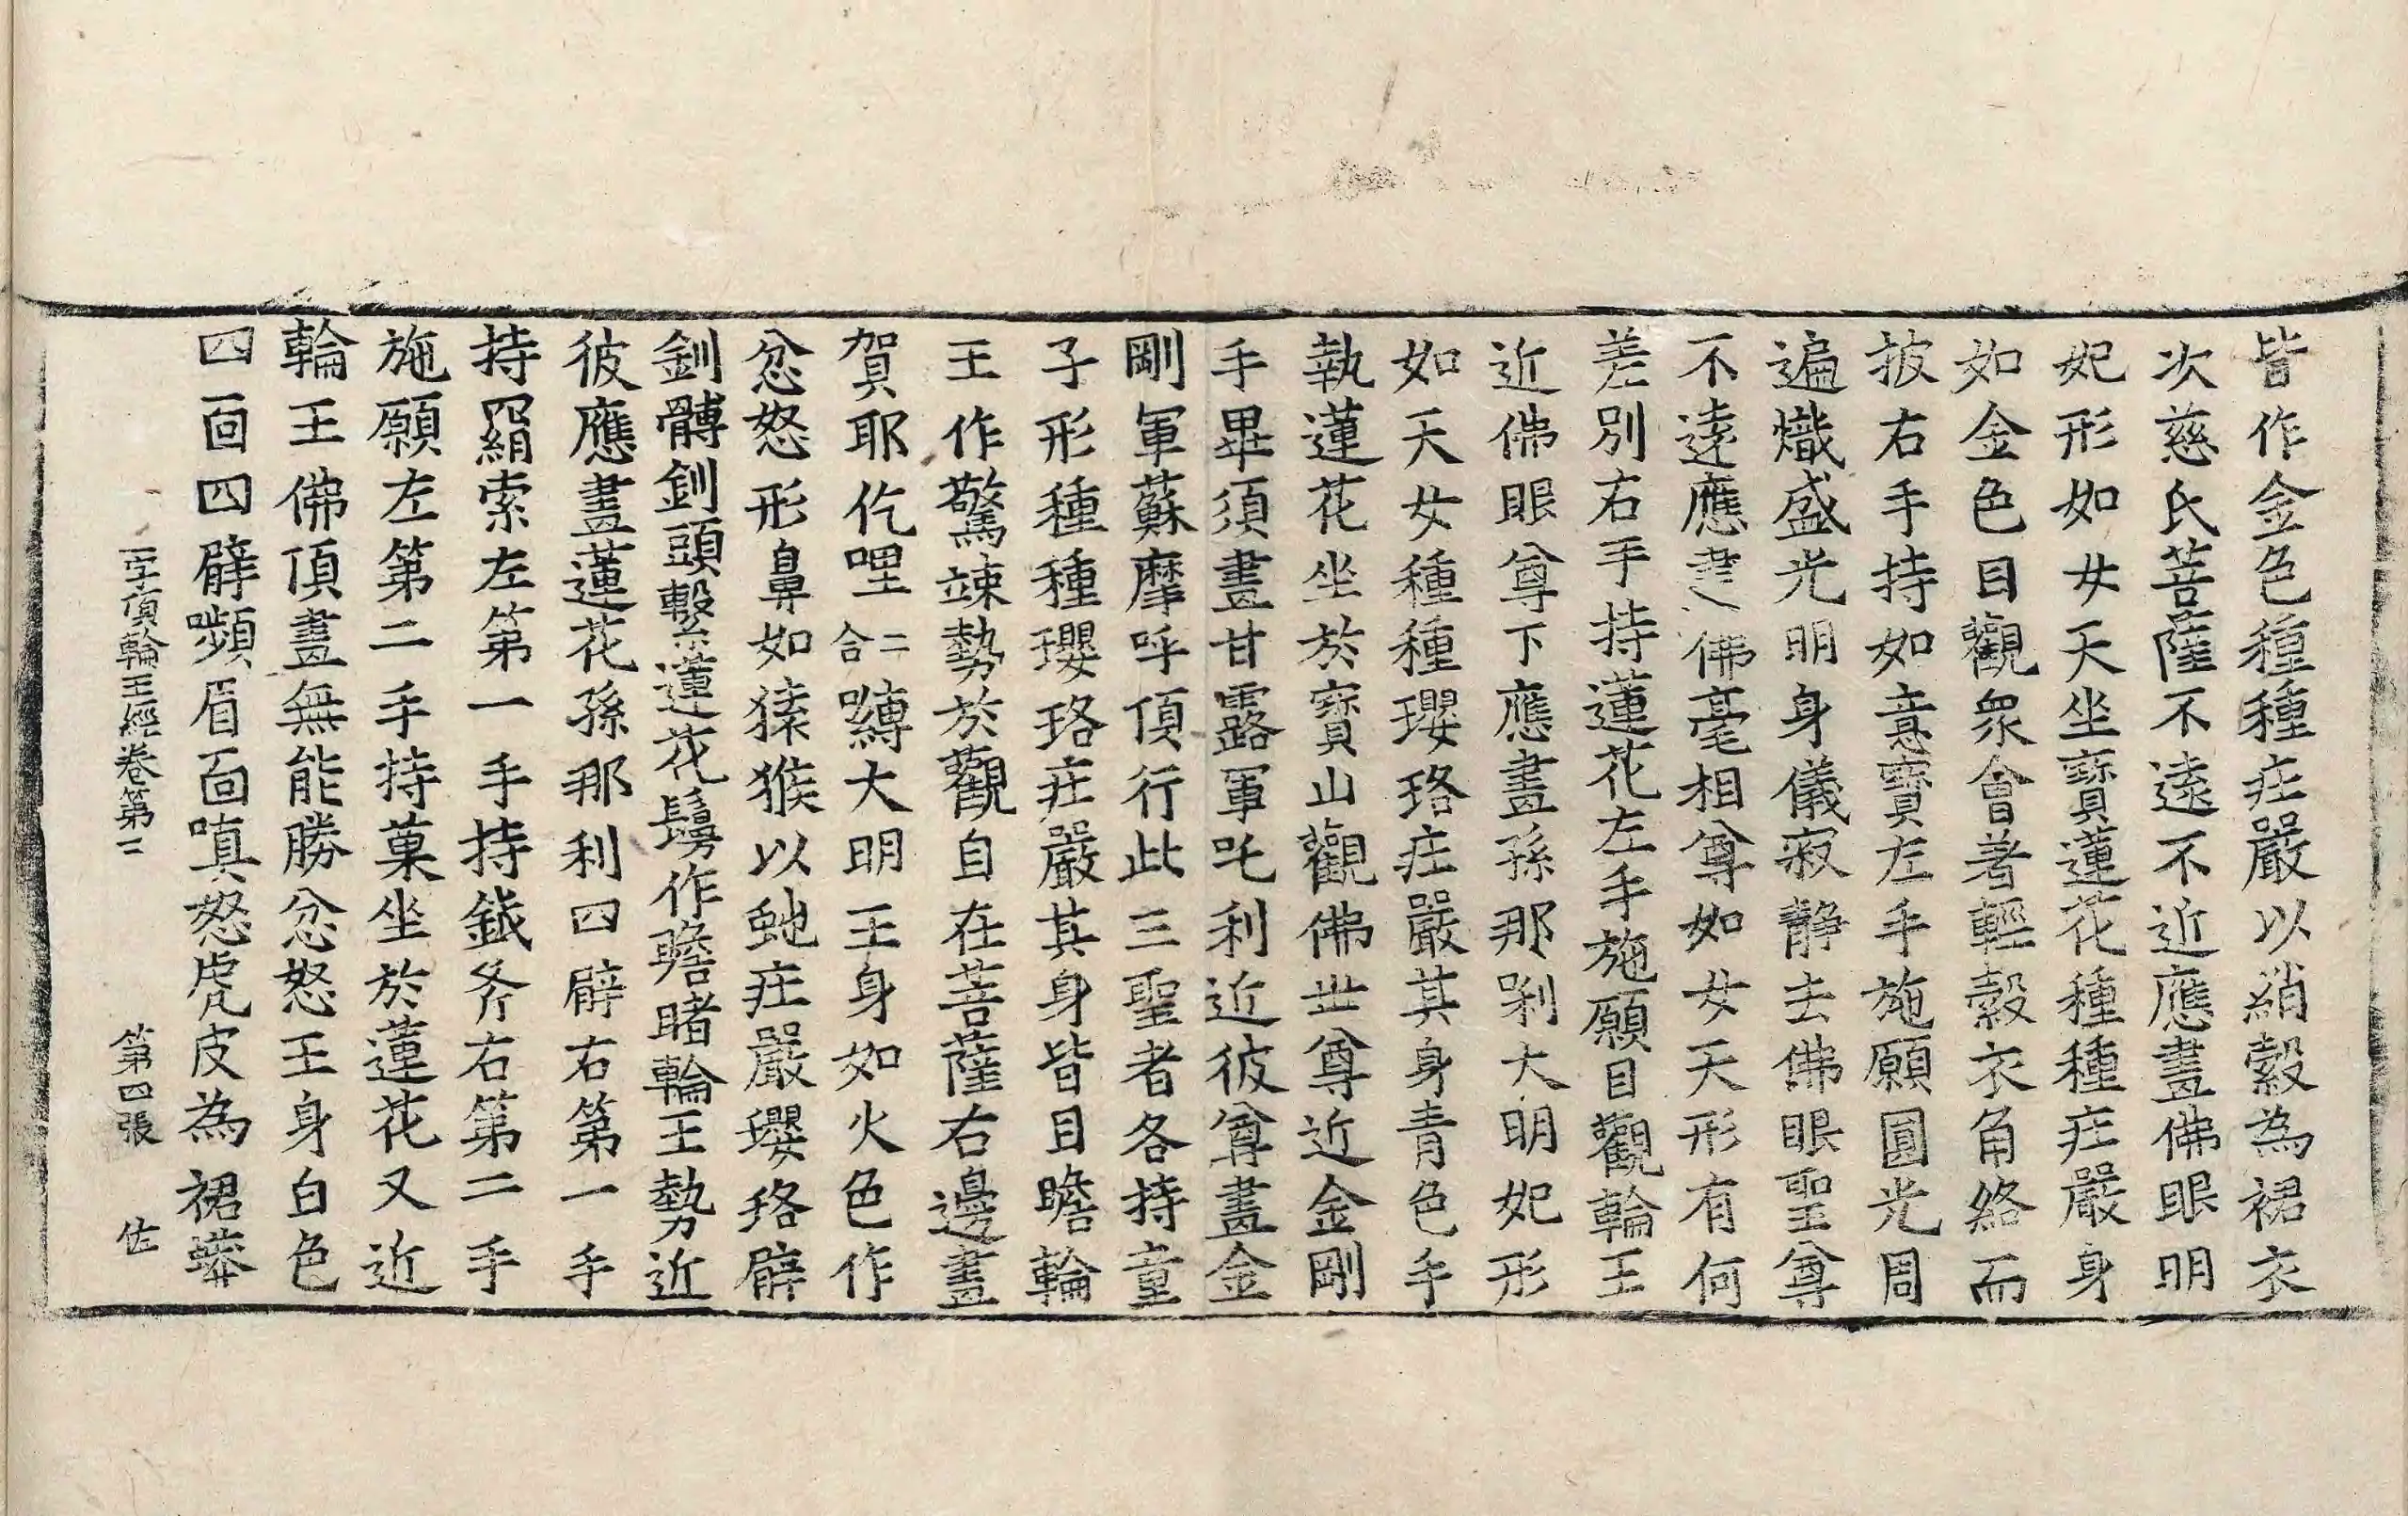 皆作金色種種疘嚴以綃縠為裙衣
次慈氏菩薩不遠不近應畫佛眼明
妃形如女天坐寳蓮花種種疘嚴身
如金色目觀衆會著輕縠衣角絡而
披右手持如意寳左手施願圓光周
遍熾盛光明身儀寂静去佛眼聖尊
不遠應畫佛毫相尊如女天形有何
差別右手持蓮花左手施願目觀輪王
近佛眼尊下應畫孫那剎大明妃形
如天女種種瓔珞疘嚴其身青色手
執蓮花坐於寳山觀佛世尊近金剛
手畢須畫甘露軍吒利近彼尊畫金
剛軍蘇摩呼頂行此三聖者各持童
子形種種瓔珞疘嚴其身皆目瞻輪
王作驚竦勢於觀自在菩薩右邊畫
賀耶仡哩二合嚩大明王身如火色作
忿怒形鼻如猿猴以虵疘嚴瓔珞臂
釧髆釧頭繫蓮花鬘作瞻睹輪王勢近
彼應畫蓮花孫那利四臂右第一手
持羂索左第一手持鉞斧右第二手
施願左第二手持菓坐於蓮花又近
輪王佛頂畫無能勝忿怒王身白色
四面四臂嚬眉面嗔怒虎皮為裙蟒
一字頂輪王經卷第二 第四張 佐